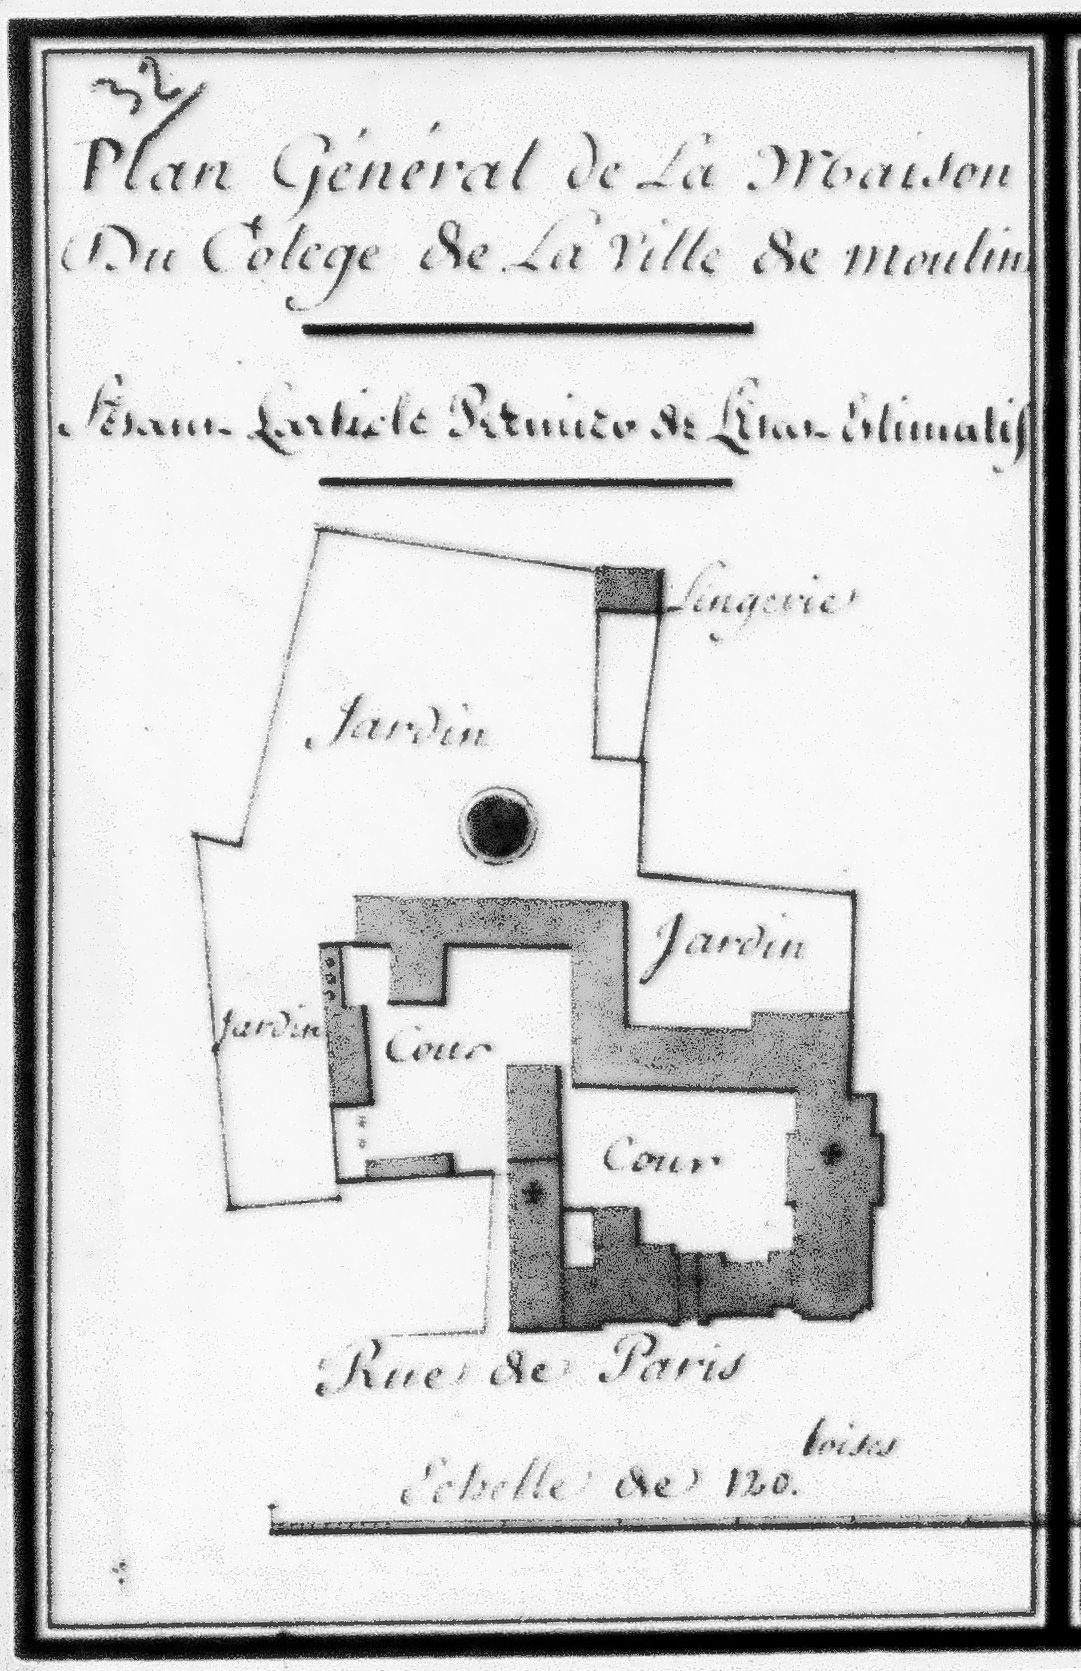 32
Plan Général de La Maison
Du Colege de La Ville de Moulin
Larticle Premier de Létat Estimatif
Lingerie
Jardin
Jardin
Jardin
Cour
Cour
Rue de Paris
Echelle de 120. toises